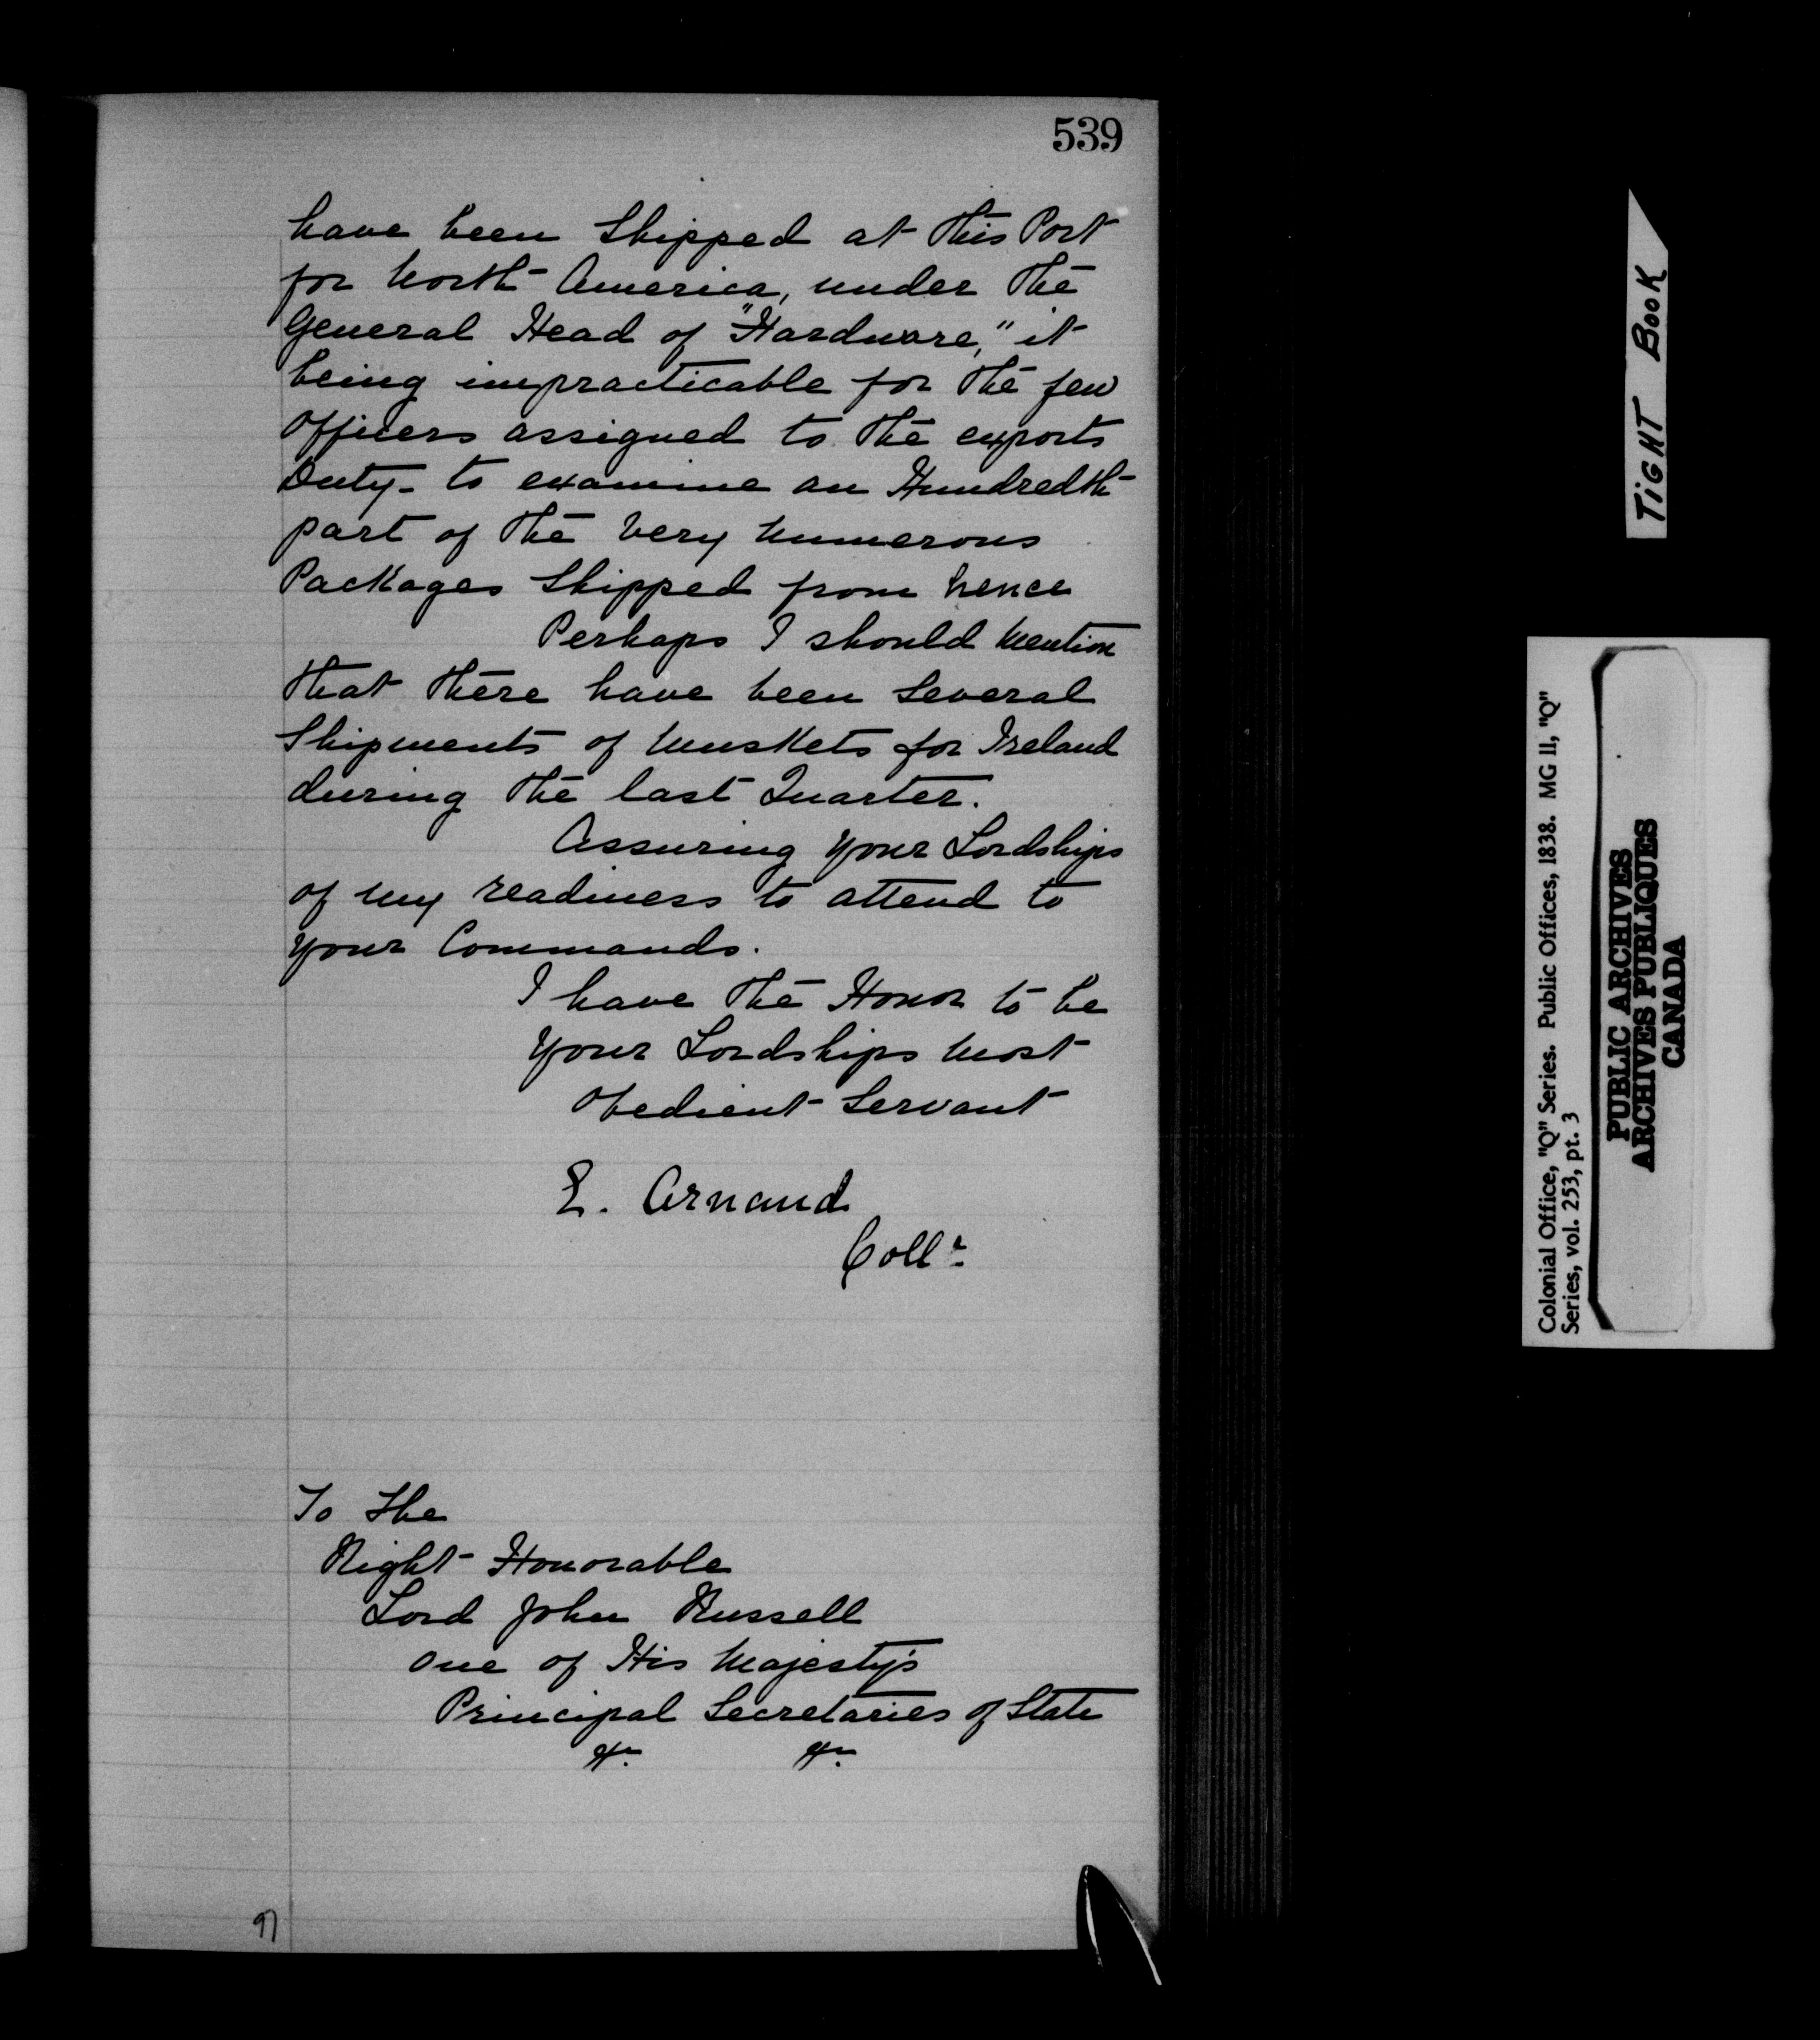 539
have been Shipped at this Port
for North America, under the
General Head of "Hardware," it
being impracticable for the few
Officers assigned to the exports
Duty - to examine an Hundredth
part of the very numerous
Packages Shipped from hence
Perhaps I should mention
that there have been several
Shipments of muskets for Ireland
during the last Quarter.
Assuring your Lordships
of my readiness to attend to
your Commands.
I have the Honor to be
your Lordships most
Obedient Servant
E. Arnaud
Collr
To The
Right Honorable
Lord John Russell
One of His Majesty's
Principal Secretaries of State
&c. &c.
97
TIGHT BOOK
Colonial Office, "Q" Series. Public Offices, 1838. MG 11, "Q"
Series, vol. 253, pt. 3
PUBLIC ARCHIVES
ARCHIVES PUBLIQUES
CANADA